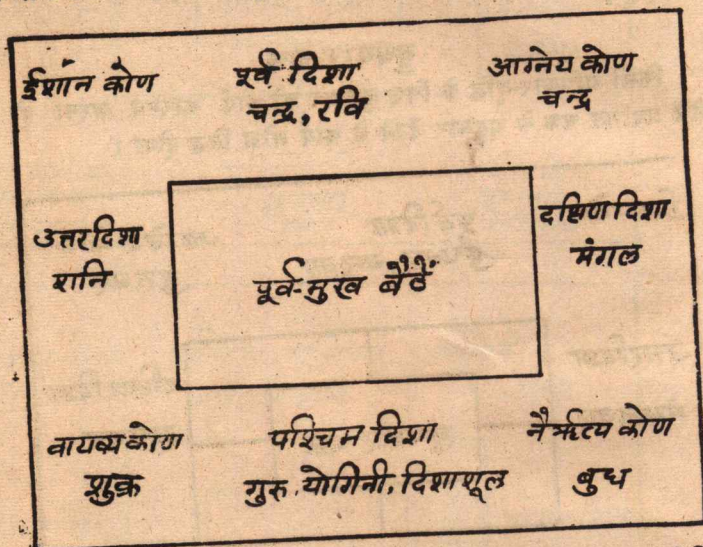 ईशांन कोण
पूर्व दिशा
चन्द्र, रवि
आग्नेय कोण
चन्द्र
उत्तर दिशा
शनि
पूर्व-मुख बैठें
दक्षिण दिशा
मंगल
वायव्य कोण
शुक्र
पश्चिम दिशा
गुरु, योगिनी, दिशाशूल
नैर्ऋत्य कोण
बुध